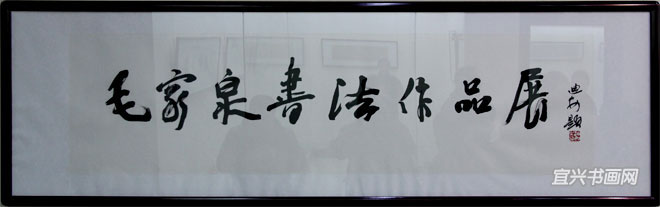 毛家泉書法作品展
宜兴书画网